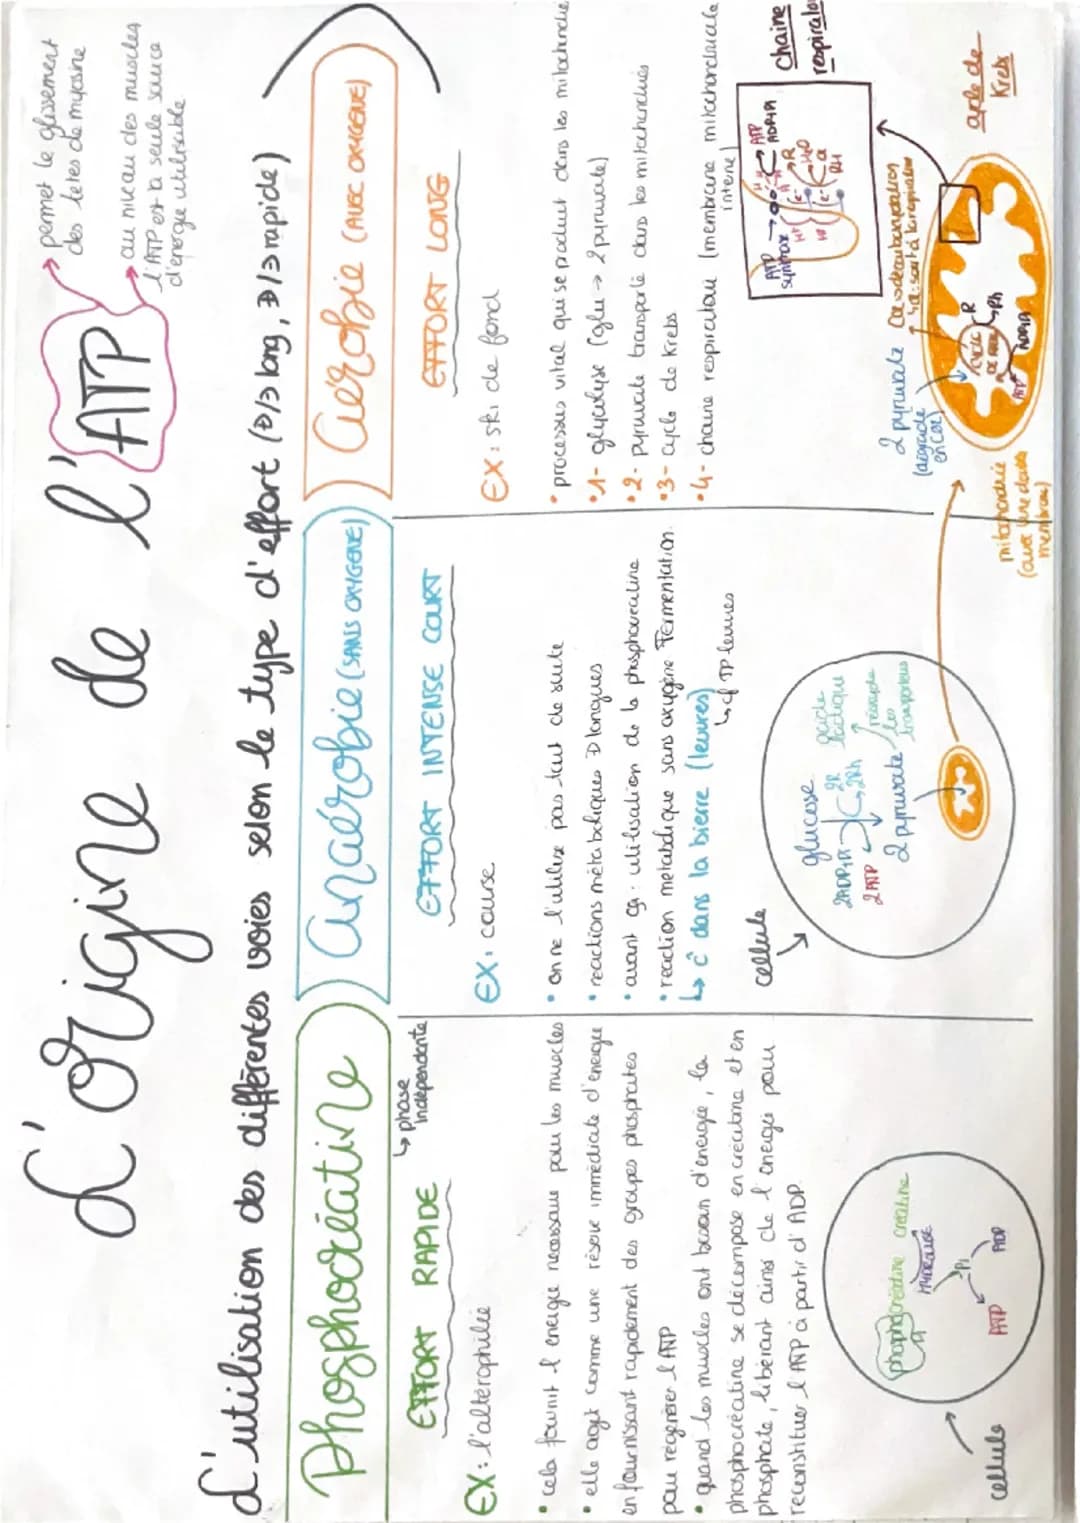 L'origine de l'ATP
→ permet le glissement
des têtes de myosine
→ au niveau des muscles
l'ATP est la seule source
d'énergie utilisable
L'utilisation des différentes voies selon le type d'effort (⊕/⊖ long, ⊕/⊖ rapide)
Phosphocréatine
↳ phase
indépendante
EFFORT RAPIDE
EX: l'altérophilie
• cela fournit l'énergie nécessaire pour les muscles
• elle agit comme une réserve immédiate d'énergie
en fournissant rapidement des groupes phosphates
pour régénérer l'ATP
• quand les muscles ont besoin d'énergie, la
phosphocréatine se décompose en créatine et en
phosphate, libérant ainsi de l'énergie pour
reconstituer l'ATP à partir d'ADP.
cellule
phosphocréatine créatine
HYDROLYSE
Pi
ATP ADP
Anaérobie (SANS OXYGENE)
EFFORT INTENSE COURT
EX: course
• on ne l'utilise pas tout de suite
• réactions métaboliques ⊕ longues
• avant ça : utilisation de la phosphocréatine
• réaction métabolique sans oxygène Fermentation
↳ c dans la bierre (levures)
↳ cf TP levures
cellule
glucose
2ADP+Pi
2ATP
2R
2Rh
2 pyruvate
acide
lactique
↑ recycle
les
transporteurs
Aérobie (AVEC OXYGENE)
EFFORT LONG
EX: ski de fond
• processus vital qui se produit dans les mitochondrie
• 1- glycolyse (glu → 2 pyruvate)
• 2- pyruvate transporté dans les mitochondries
• 3- cycle de Krebs
• 4- chaine respiratoire (membrane mitochondriale
interne)
ATP
synthase
H+
H+
e-
e-
R
H2O
RH
ATP
ADP+Pi
chaine
respirato
2 pyruvate
(dégradé
en CO2)
mitochondrie
(avec une double
membrane)
CYCLE
DE KREBS
R
Rh
ATP
ADP+Pi
cycle de
Krebs